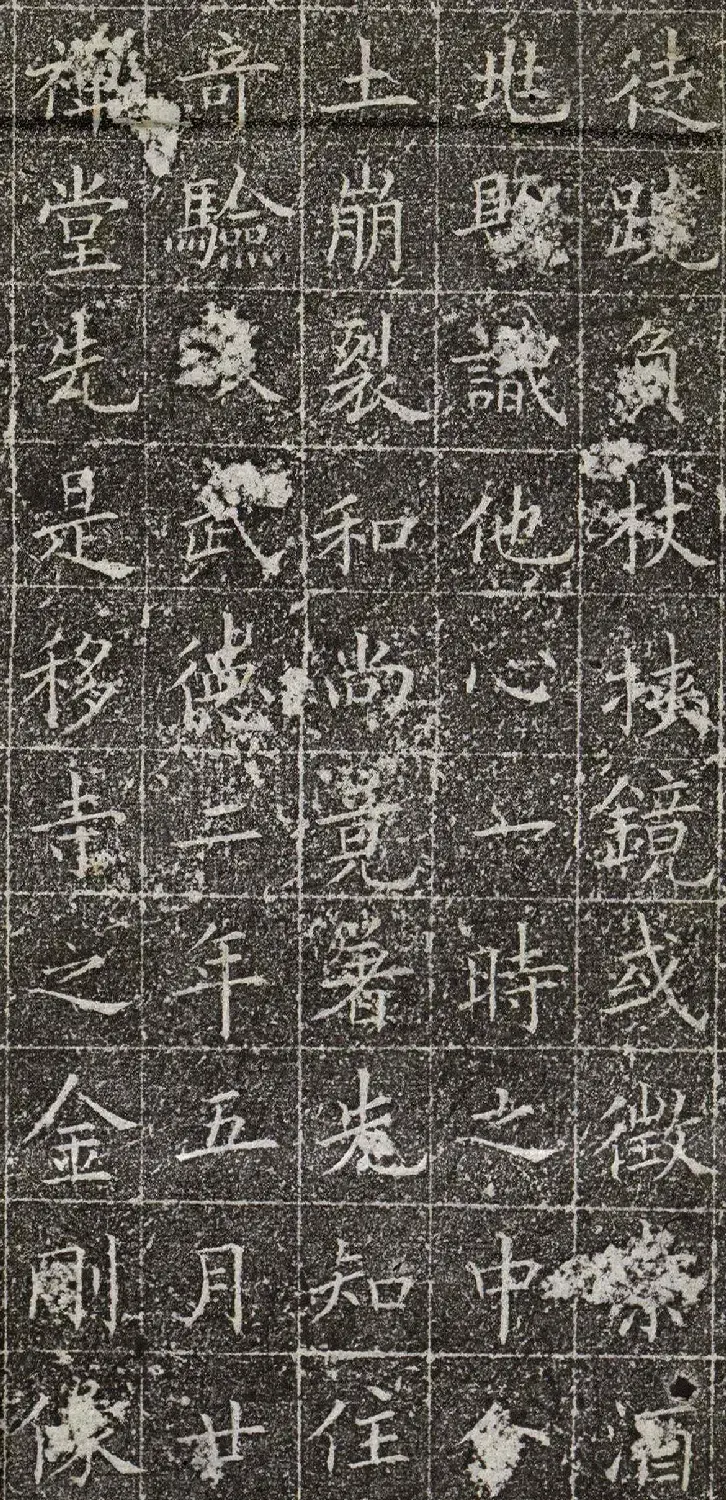 徒跣負杖挾鏡或徵索酒
兆識他心一時之中
土崩裂和尚竟著先知住
奇驗武德二年五月廿
禪堂先是移寺之金剛像